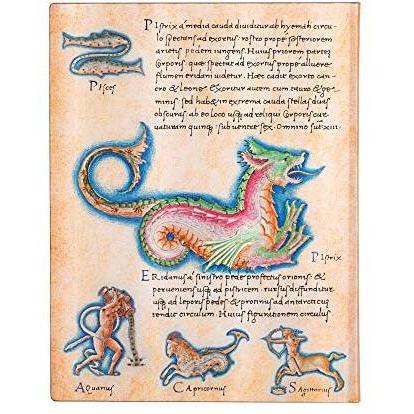 PIstrix a media cauda diuiditur ab hyemali circu
lo spectans ad exortus. rostro prope posteriorem
arietis pedem iungens. Huius priorem partem
Corporis. quae spectat ad exortus prope alluere
flumen eridani uidetur. Haec cadit exorto can
cro & leone. Exoritur autem cum tauro & ge
minis. Sed habet in extrema cauda stellas duas
obscuras. ab eo loco usque ad reliqui Corporis cur
uaturam quinque. sub uentre sex. Omnino sunt xiii.
PIsces
PIstrix
ERidanus a sinistro pede profectus orionis. &
perueniens usque ad pistricem. rursus diffunditur
usque ad leporis pedes & protinus ad antarcticum
tendit circulum. Huius figurationem circulus
AQuarius
CApricornus
SAgittarius